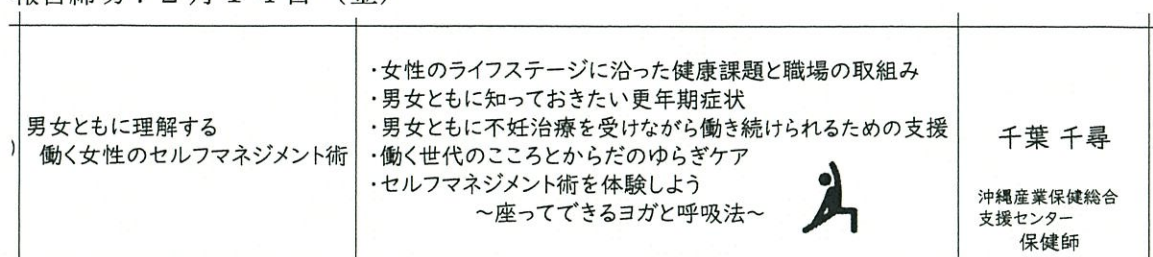 男女ともに理解する
働く女性のセルフマネジメント術
・女性のライフステージに沿った健康課題と職場の取組み
・男女ともに知っておきたい更年期症状
・男女ともに不妊治療を受けながら働き続けられるための支援
・働く世代のこころとからだのゆらぎケア
・セルフマネジメント術を体験しよう
～座ってできるヨガと呼吸法～
千葉 千尋
沖縄産業保健総合
支援センター
保健師